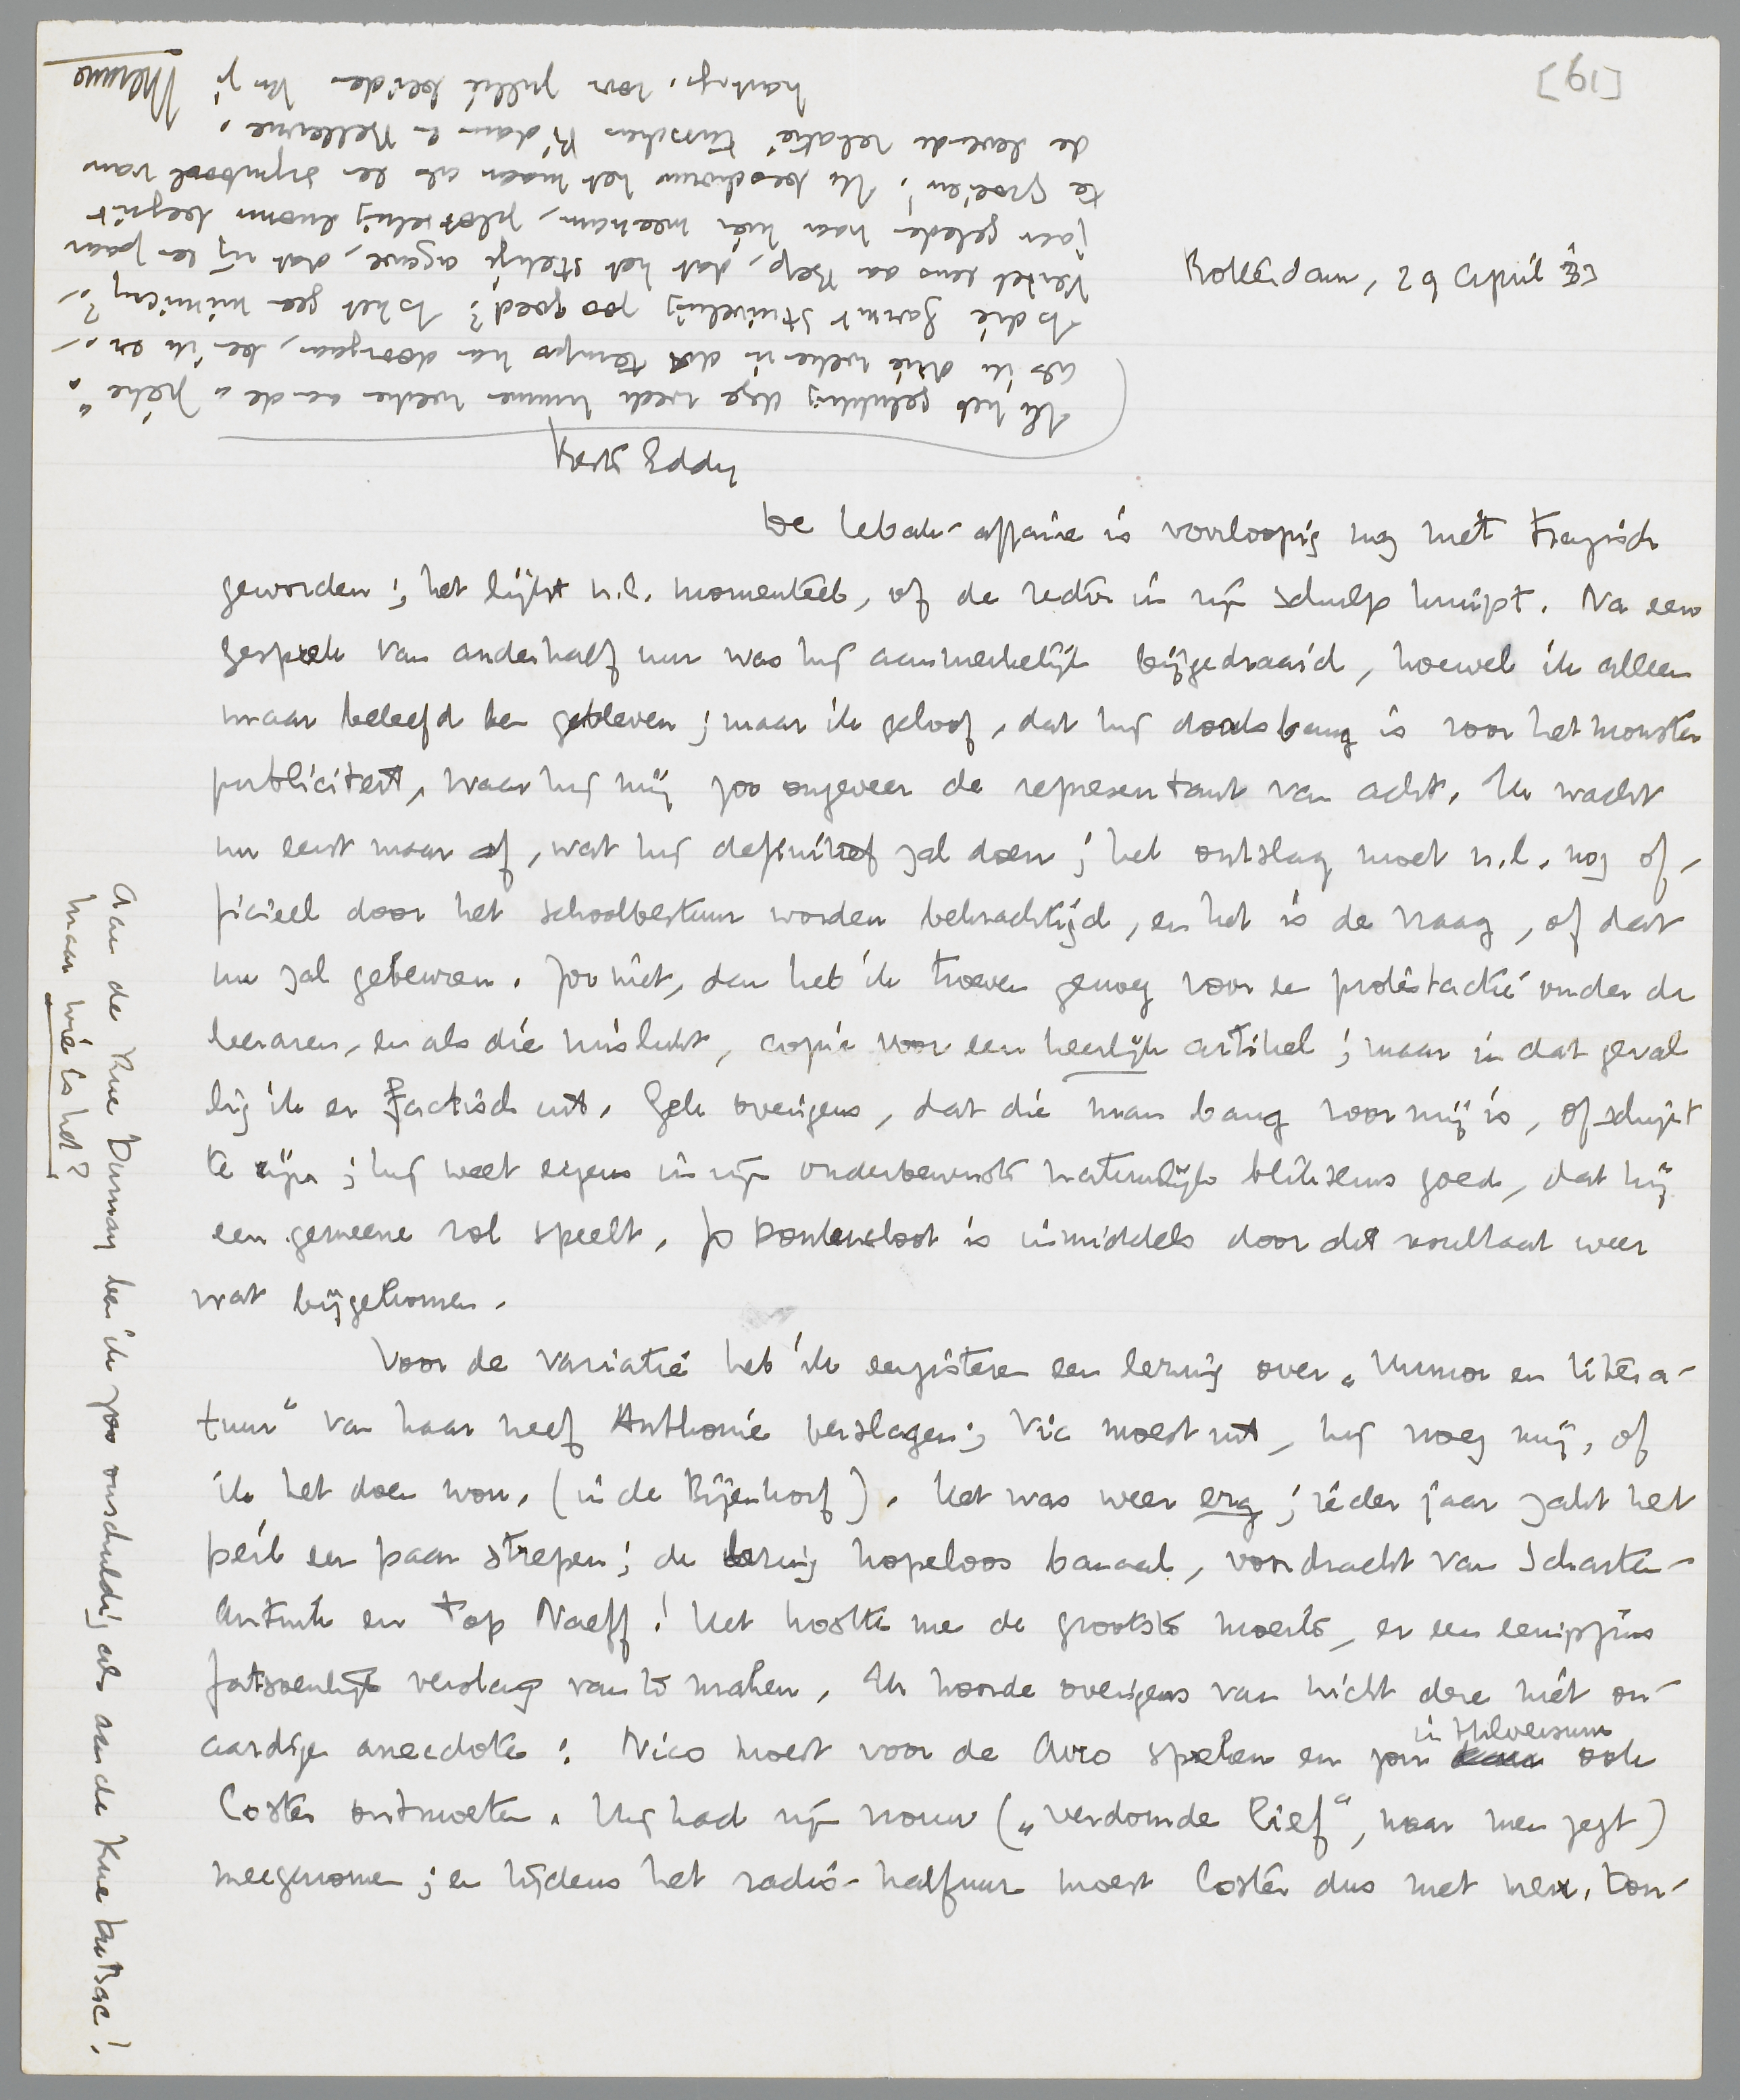 [61]
Rotterdam, 29 April '33
Beste Eddy
De Lebak-affaire is voorloopig nog niet tragisch
geworden; het lijkt n.l. momenteel, of de rector in zijn schulp kruipt. Na een
gesprek van anderhalf uur was hij aanmerkelijk bijgedraaid, hoewel ik alleen
maar beleefd ben gebleven; maar ik geloof, dat hij doodsbang is voor het monster
publiciteit, waar hij mij zoo ongeveer de representant van acht. Ik wacht
nu eerst maar af, wat hij definitief zal doen; het ontslag moet n.l. nog of-
ficieel door het schoolbestuur worden bekrachtigd, en het is de vraag, of dat
nu zal gebeuren. Zoo niet, dan heb ik troeven genoeg voor een protestactie onder de
leeraren, en als die mislukt, copie voor een heerlijk artikel; maar in dat geval
lig ik er factisch uit. Gek overigens, dat die man bang voor mij is, of schijnt
te zijn; hij weet ergens in zijn onderbewuste natuurlijk bliksems goed, dat hij
een gemeene rol speelt. Jo Donkersloot is inmiddels door dit resultaat weer
wat bijgekomen.
Voor de variatie heb ik eergisteren een lezing over „Humor en litera-
tuur" van haar neef Anthonie verslagen; Vic moest uit, hij vroeg mij, of
ik het doen wou. (in de Bijenkorf). Het was weer erg; ieder jaar zakt het
peil een paar strepen; de lezing hopeloos banaal, voordracht van Scharten-
Antink en Top Naeff! Het kostte me de grootste moeite, er een eenigszins
fatsoenlijk verslag van te maken. Ik hoorde overigens van nicht deze niet on-
aardige anecdote: Nico moest voor de Avro spreken en zou in Hilversum ook
Coster ontmoeten. Hij had zijn vrouw („verdomde lief", naar men zegt)
meegenomen; en tijdens het radio-halfuur moest Coster dus met mevr. Don-
Aan de Rue Dumay ben ik zoo onschuldig als aan de Rue Balsac!
Maar wie is het?
Ik heb gelukkig deze week kunnen werken aan de „piece";
als ik drie weken in dit tempo kan doorgaan, ben ik er. –
Is die Garmt Stuiveling zoo goed? Is het geen mimicry? –
Vertel eens aan Bep, dat het stekje agave, dat zij een paar
jaar geleden naar hier meenam, plotseling enorm begint
te groeien! Ik beschouw het maar als een symbool van
de levende relatie tusschen R'dam en Bellevue.
hartelijks voor jullie beiden van je Menno